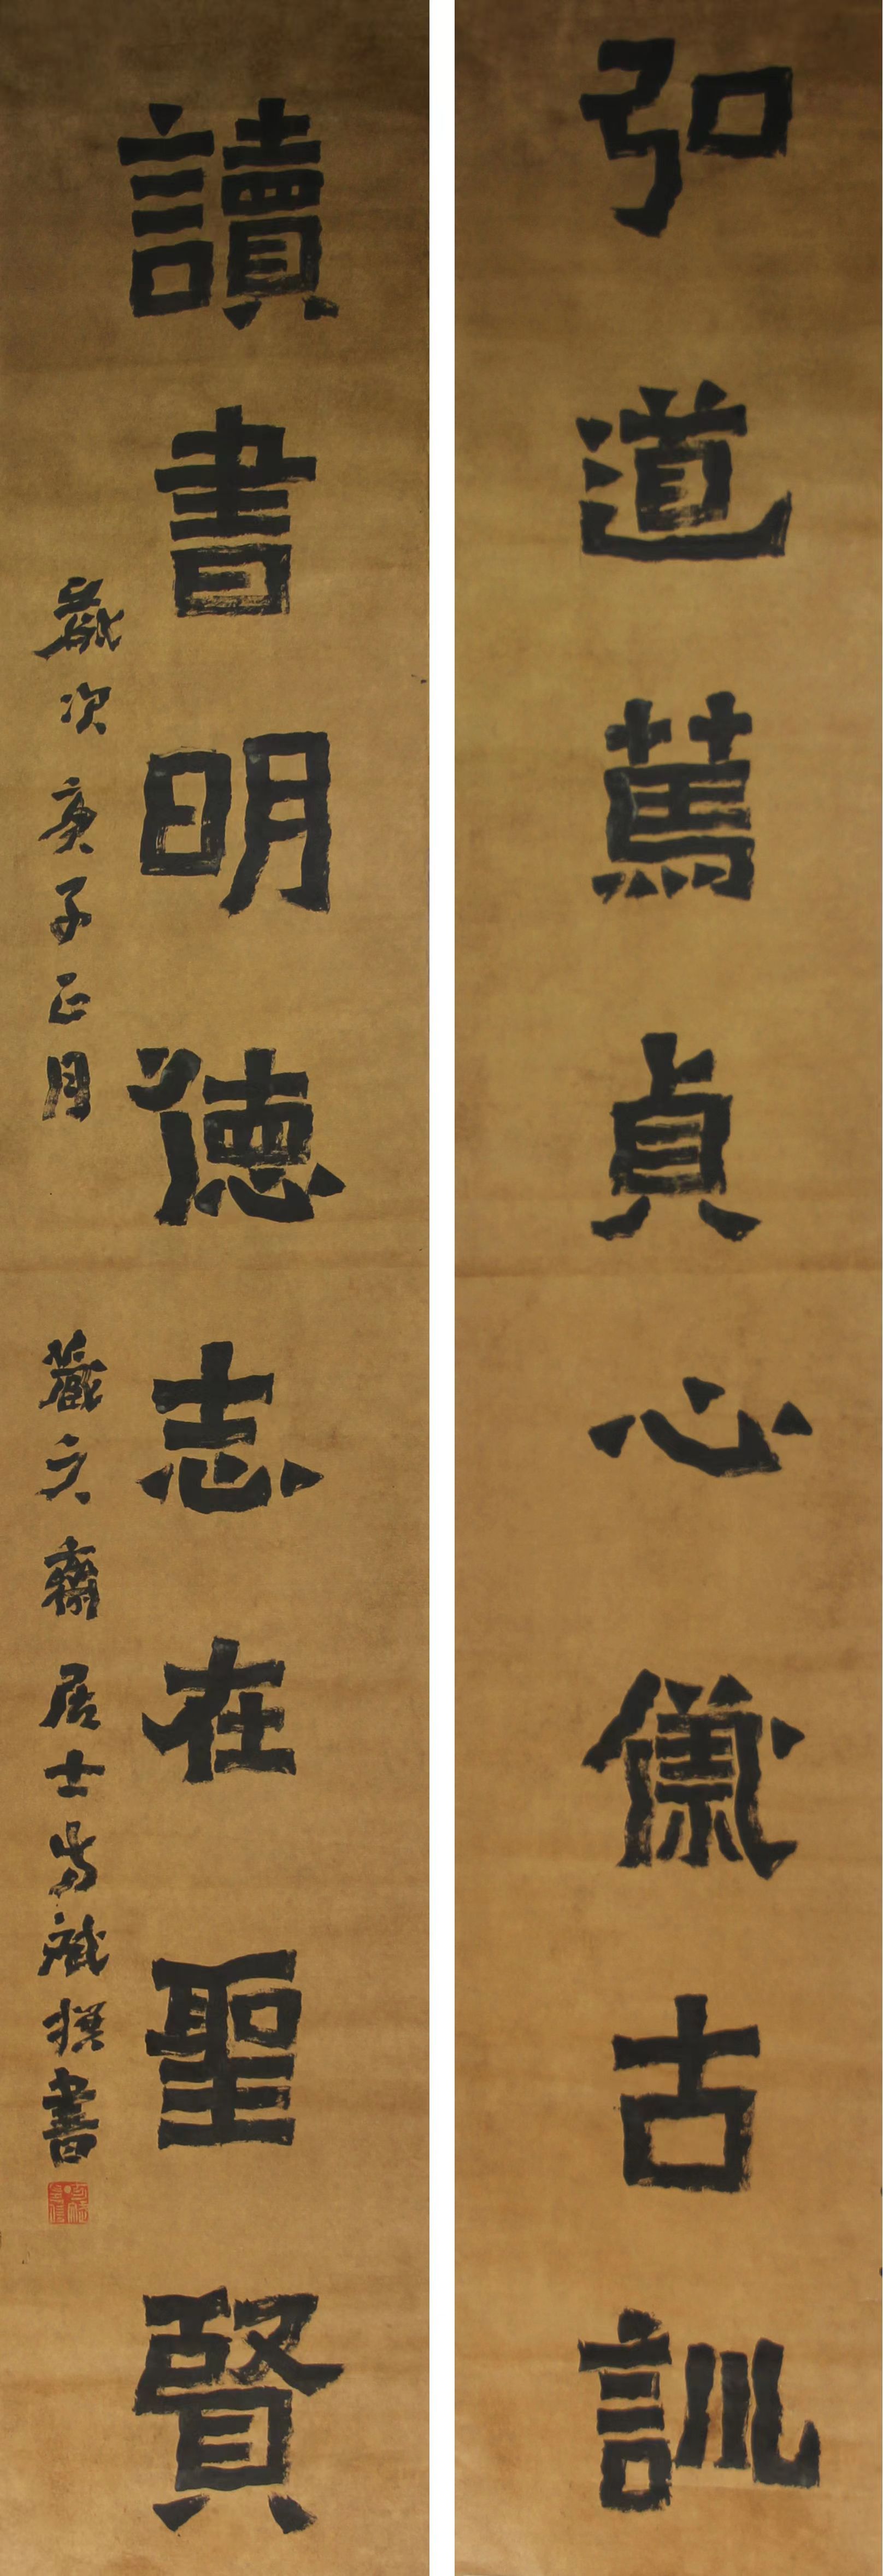 弘道篤貞心儀古訓
讀書明德志在聖賢
歲次庚子正月 文齋居士 撰書